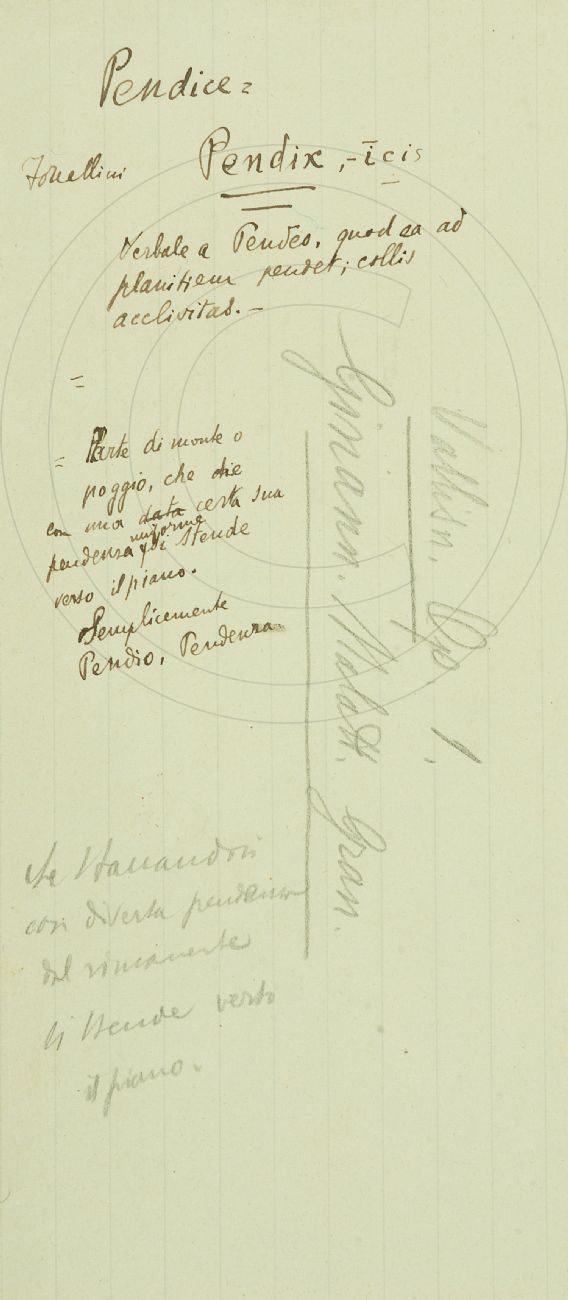 Pendice =
Forcellini Pendix, -īcis
Verbale a Pendeo, quod ea ad
planitiem pendet; collis
acclivitas. -
=
= Parte di monte o
poggio, che che
con una data certa sua
uniforme
pendenza si stende
verso il piano.
Semplicemente
Pendio, Pendenza
con diversa pendenza
del rimanente
si stende verso
il piano.
Vallisn. Op. 1.
Ginann. Malatt. Gran.